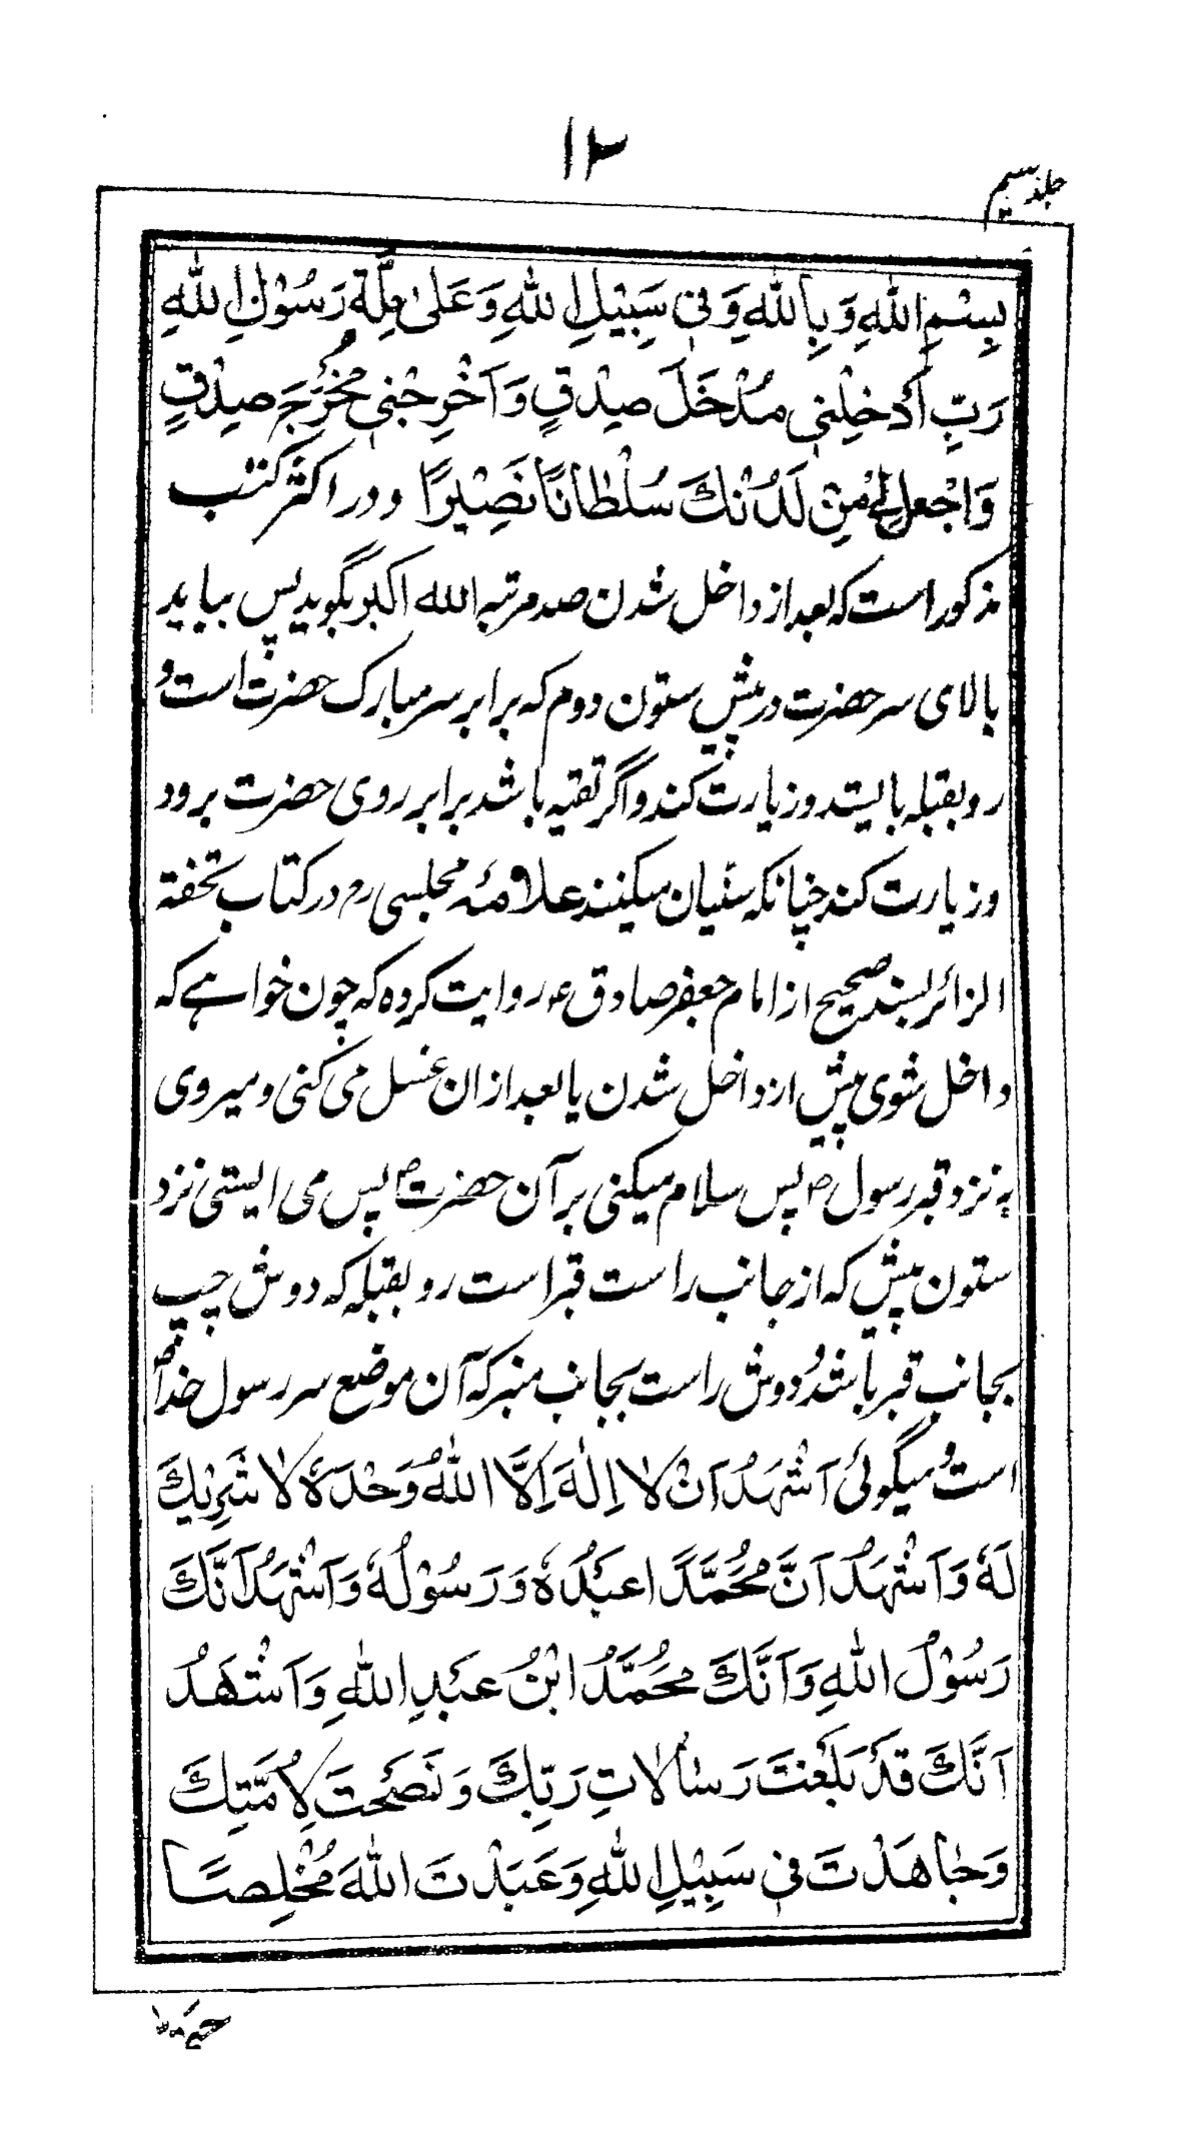 ١٢
جلد سیم
بِسْمِ اللهِ وَبِاللهِ وَفِي سَبِيْلِ اللهِ وَعَلىٰ مِلَّةِ رَسُوْلِ اللهِ
رَبِّ اَدْخِلْنِي مُدْخَلَ صِدْقٍ وَاَخْرِجْنِي مُخْرَجَ صِدْقٍ
وَاجْعَل لِي مِنْ لَدُنْكَ سُلْطَانًا نَصِيْرًا ودر اکثر کتب
مذکور است که بعد از داخل شدن صد مرتبه الله اکبر بگوید پس بیاید
بالای سر حضرت در پیش ستون دوم که برابر سر مبارک حضرت است و
رو بقبله بایستد و زیارت کند و اگر تقیه باشد برابر روی حضرت برود
و زیارت کند چنانکه سنّیان میکنند علامهٔ مجلسی ره در کتاب تحفة
الزائر بسند صحیح از امام جعفر صادق ع روایت کرده که چون خواهے که
داخل شوی پیش از داخل شدن یا بعد از ان غسل می کنی و میروی
به نزد قبر رسول ص پس سلام میکنی بر آن حضرت ص پس می ایستی نزد
ستون پیش که از جانب راست قبر است رو بقبله که دوش چپ
بجانب قبر باشد و دوش راست بجانب منبر که آن موضع سر رسول خدا ص
است و میگوئی اَشْهَدُ اَنْ لا اِلٰهَ اِلَّا اللهُ وَحْدَهٗ لا شَرِيْكَ
لَهٗ وَاَشْهَدُ اَنَّ مُحَمَّدًا عَبْدُهٗ وَرَسُوْلُهٗ وَاَشْهَدُ اَنَّكَ
رَسُوْلُ اللهِ وَاَنَّكَ مُحَمَّدُ ابْنُ عَبْدِ اللهِ وَاَشْهَدُ
اَنَّكَ قَدْ بَلَّغْتَ رَسٰالاتِ رَبِّكَ وَنَصَحْتَ لِاُمَّتِكَ
وَجٰاهَدْتَ فِي سَبِيْلِ اللهِ وَعَبَدْتَ اللهَ مُخْلِصًا
حتی